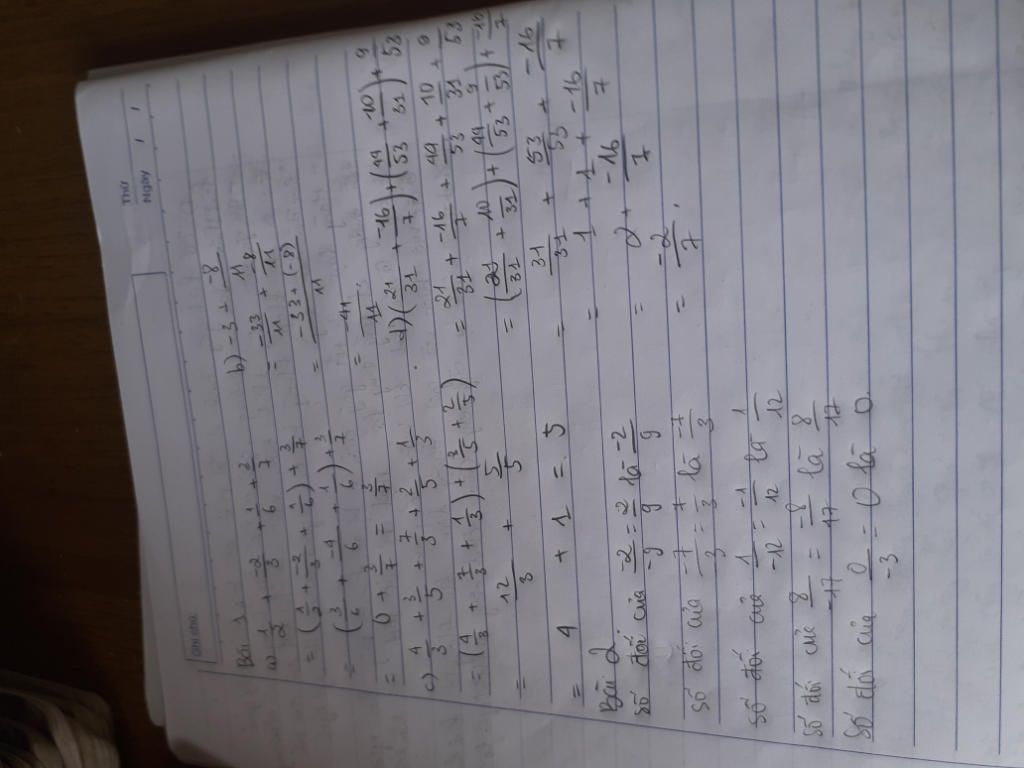 Thứ
Ngày / /
Ghi chú
Bài 1
a) 1/2 + -2/3 + 1/6 + 3/7
= (1/2 + -2/3 + 1/6) + 3/7
= (3/6 + -4/6 + 1/6) + 3/7
= 0 + 3/7 = 3/7
b) -3 + -8/11
= -33/11 + -8/11
= -33+(-8)/11
= -41/11.
c) 4/3 + 3/5 + 7/3 + 2/5 + 1/3
= (4/3 + 7/3 + 1/3) + (3/5 + 2/5)
= 12/3 + 5/5
= 4 + 1 = 5
d) (21/31 + -16/7) + (44/53 + 10/31) + 9/53
= 21/31 + -16/7 + 44/53 + 10/31 + 9/53
= (21/31 + 10/31) + (44/53 + 9/53) + -16/7
= 31/31 + 53/53 + -16/7
= 1 + 1 + -16/7
= 2 + -16/7
= -2/7.
Bài 2
Số đối của -2/-9 = 2/9 là -2/9
Số đối của -7/3 = 7/3 là -7/3
Số đối của 1/-12 = -1/12 là 1/12
Số đối của 8/-17 = -8/17 là 8/17
Số đối của 0/-3 = 0 là 0